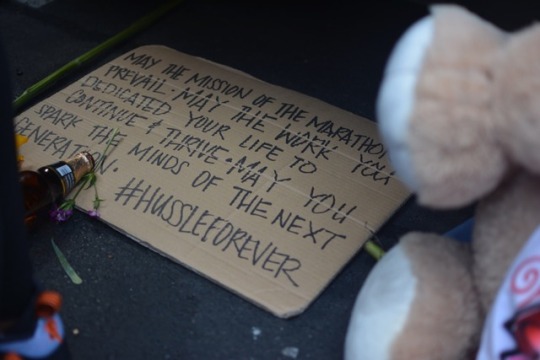 MAY THE MISSION OF THE MARATHON
PREVAIL. MAY THE WORK YOU
DEDICATED YOUR LIFE TO
CONTINUE & THRIVE. MAY YOU
SPARK THE MINDS OF THE NEXT
GENERATION.
#HUSSLEFOREVER